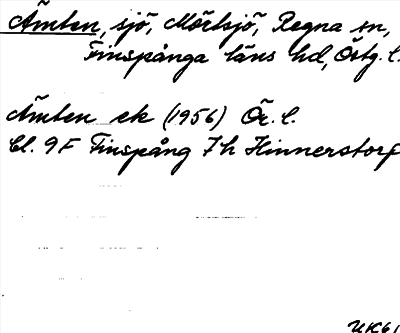 Ämten, sjö, Mörtsjö, Regna sn,
Finspånga läns hd, Östg. l.
Ämten ek (1956) Ör. l.
Bl. 9F Finspång 7h Hinnerstorp
UK61